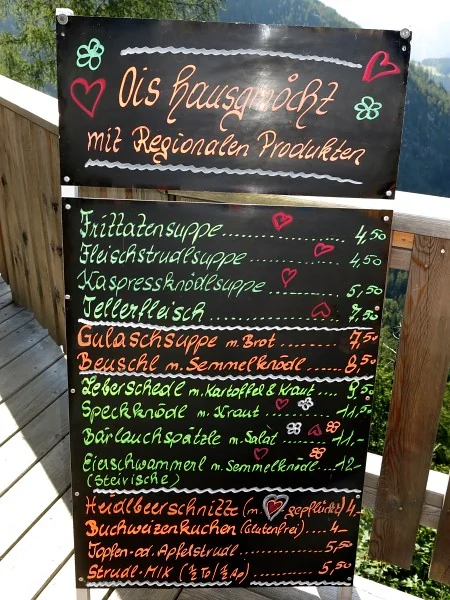 Ois hausgmöcht
mit Regionalen Produkten
Frittatensuppe.................... 4,50
Fleischstrudlsuppe............... 4,50
Kaspressknödlsuppe............ 5,50
Tellerfleisch.................... 7,50
Gulaschsuppe m. Brot........ 7,50
Beuschl m. Semmelknödl.... 8,50
Leberschedl m. Kartoffel & Kraut.... 9,50
Speckknödl m. Kraut......... 11,50
Bärlauchspätzle m. Salat...... 11,-
Eierschwammerl m. Semmelknödl... 12,-
(Steirische)
Heidlbeerschnitte (m. gepflückt) 4,-
Buchweizenkuchen (Glutenfrei).... 4,-
Topfen- od. Apfelstrudl............ 5,50
Strudl-MIX (½ To/½ Ap)............ 5,50